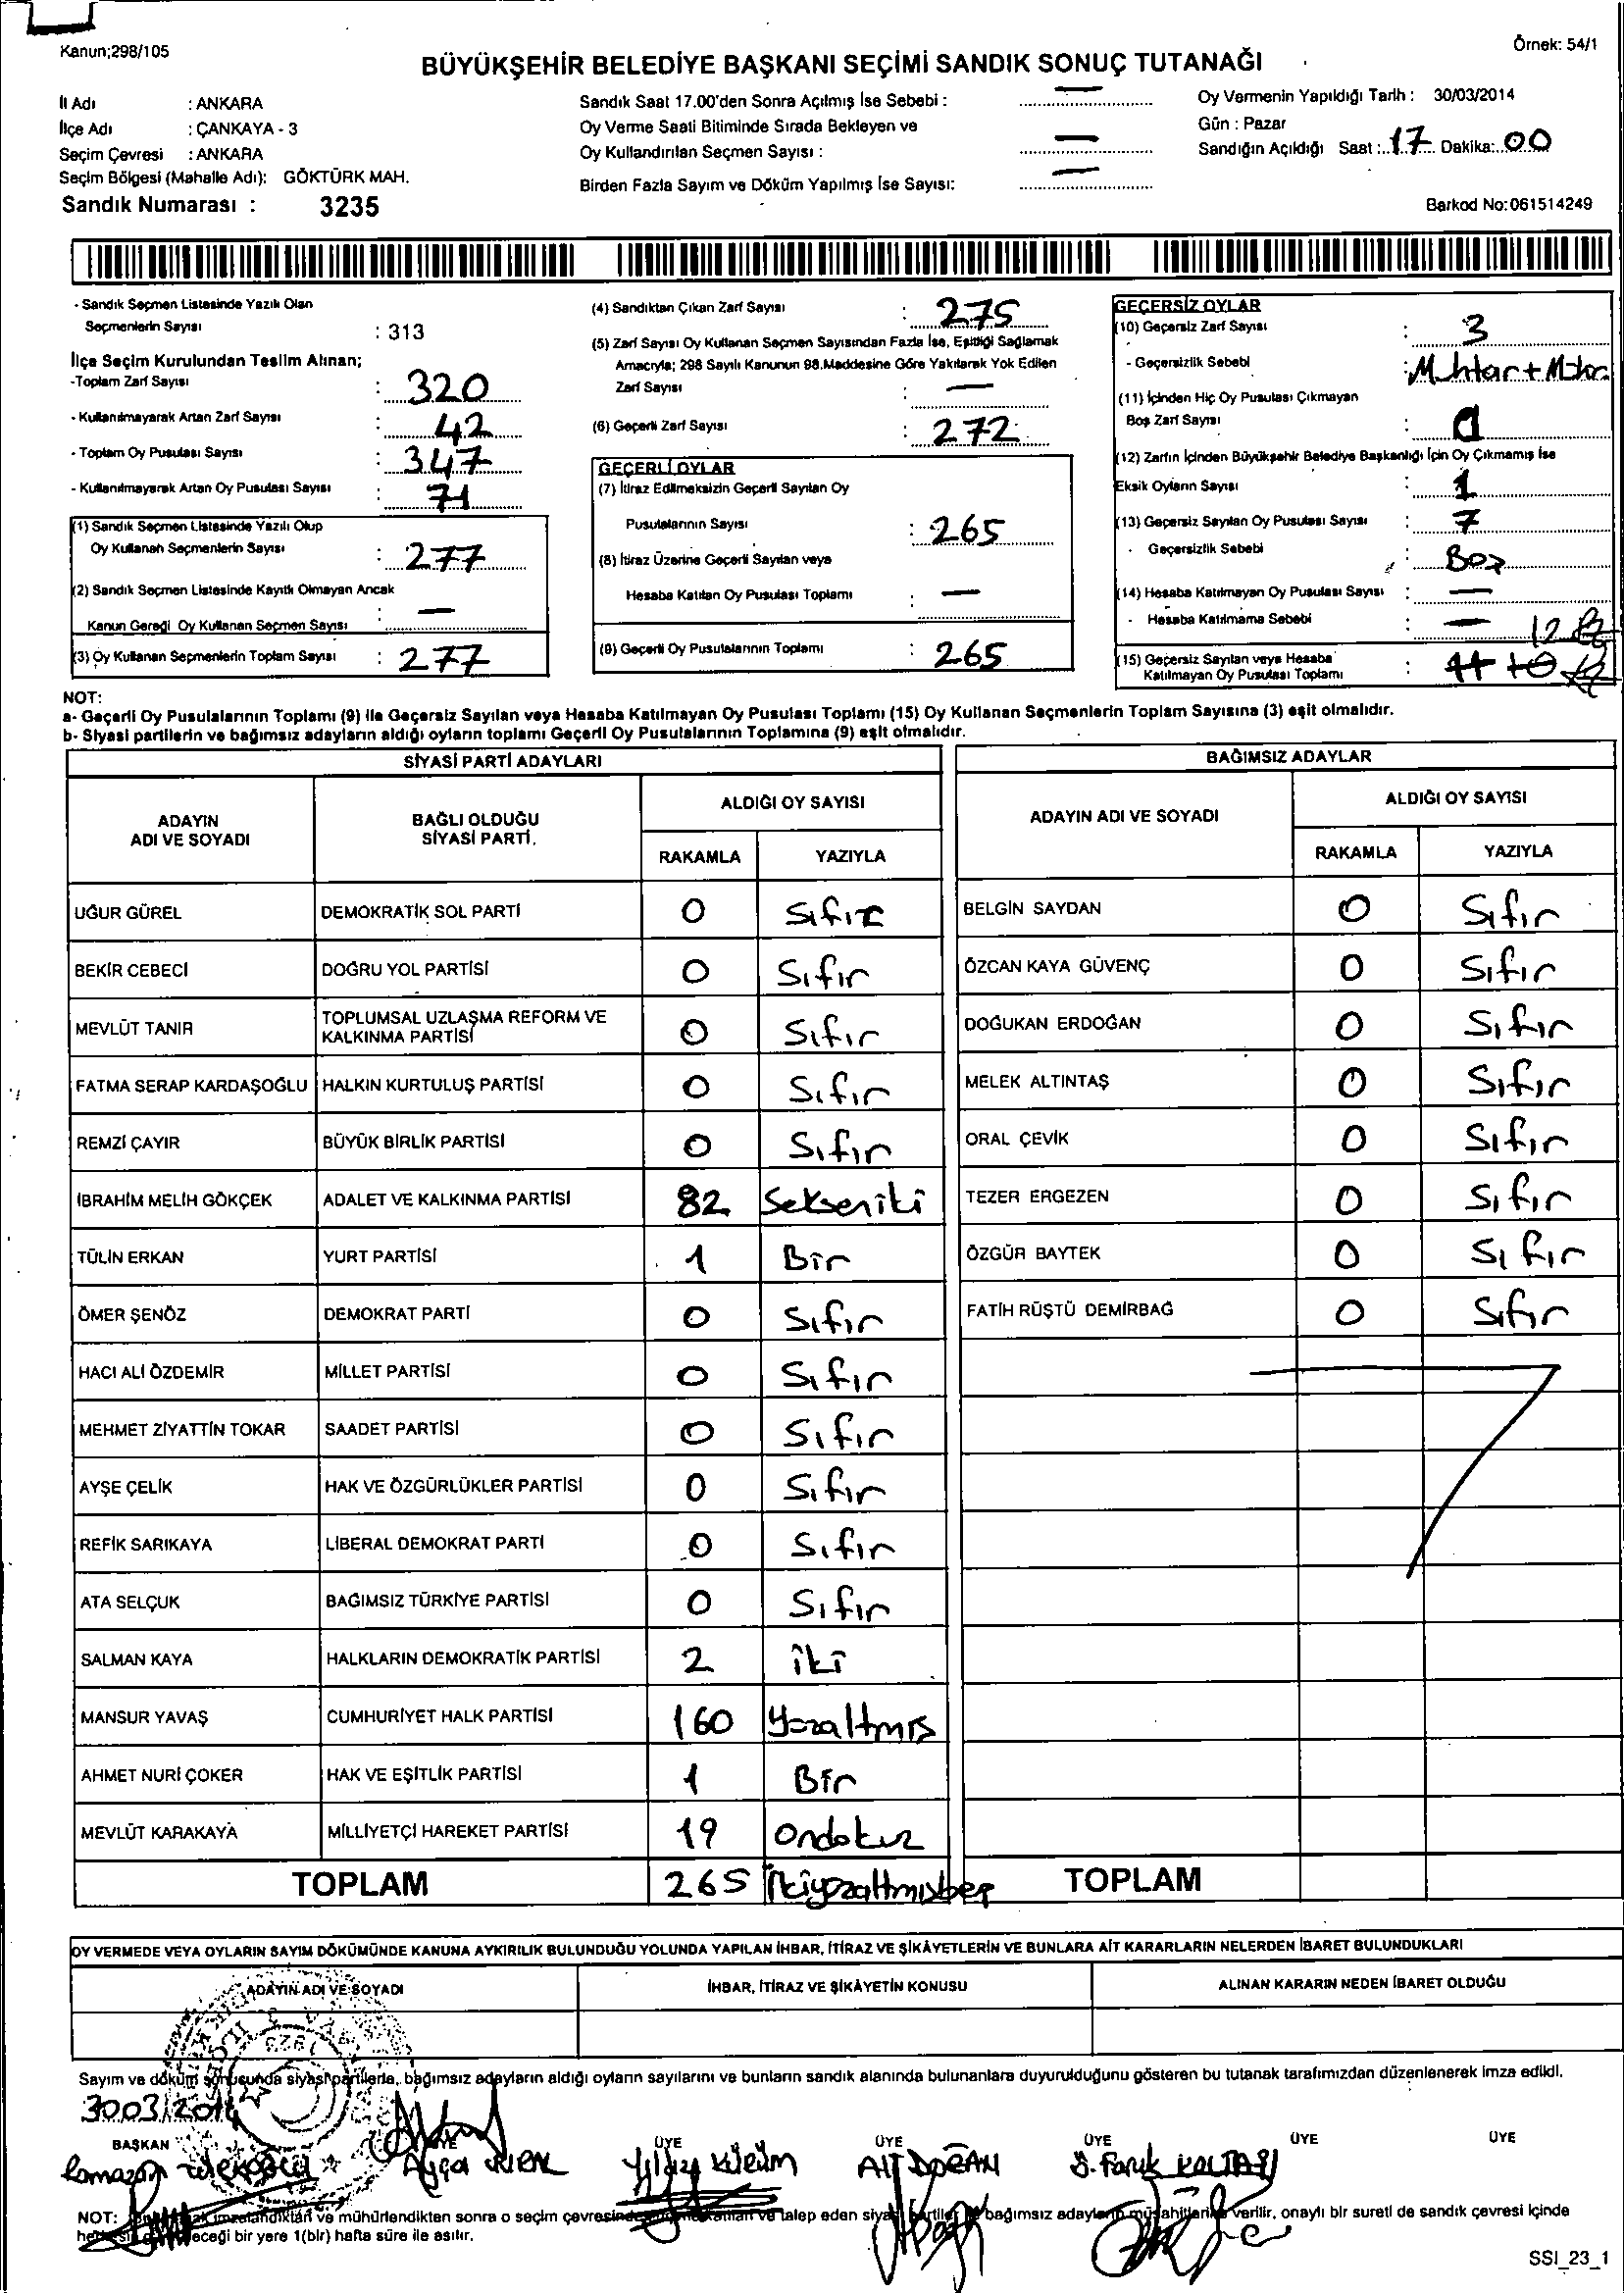 Kanun;298/105
Örnek: 54/1
BÜYÜKŞEHİR BELEDİYE BAŞKANI SEÇİMİ SANDIK SONUÇ TUTANAĞI
İl Adı : ANKARA
İlçe Adı : ÇANKAYA - 3
Seçim Çevresi : ANKARA
Seçim Bölgesi (Mahalle Adı): GÖKTÜRK MAH.
Sandık Numarası : 3235
Sandık Saat 17.00'den Sonra Açılmış İse Sebebi : —
Oy Verme Saati Bitiminde Sırada Bekleyen ve
Oy Kullandırılan Seçmen Sayısı : —
Birden Fazla Sayım ve Döküm Yapılmış İse Sayısı: —
Oy Vermenin Yapıldığı Tarih : 30/03/2014
Gün : Pazar
Sandığın Açıldığı Saat : 17 Dakika: 00
Barkod No:061514249
- Sandık Seçmen Listesinde Yazılı Olan
Seçmenlerin Sayısı : 313
İlçe Seçim Kurulundan Teslim Alınan;
-Toplam Zarf Sayısı : 320
- Kullanılmayarak Artan Zarf Sayısı : 42
- Toplam Oy Pusulası Sayısı : 347
- Kullanılmayarak Artan Oy Pusulası Sayısı : 71
(1) Sandık Seçmen Listesinde Yazılı Olup
Oy Kullanan Seçmenlerin Sayısı : 277
(2) Sandık Seçmen Listesinde Kayıtlı Olmayan Ancak
Kanun Gereği Oy Kullanan Seçmen Sayısı : —
(3) Oy Kullanan Seçmenlerin Toplam Sayısı : 277
(4) Sandıktan Çıkan Zarf Sayısı : 275
(5) Zarf Sayısı Oy Kullanan Seçmen Sayısından Fazla İse, Eşitliği Sağlamak
Amacıyla; 298 Sayılı Kanunun 98.Maddesine Göre Yakılarak Yok Edilen
Zarf Sayısı : —
(6) Geçerli Zarf Sayısı : 272
GEÇERLİ OYLAR
(7) İtiraz Edilmeksizin Geçerli Sayılan Oy
Pusulalarının Sayısı : 265
(8) İtiraz Üzerine Geçerli Sayılan veya
Hesaba Katılan Oy Pusulası Toplamı : —
(9) Geçerli Oy Pusulalarının Toplamı : 265
GEÇERSİZ OYLAR
(10) Geçersiz Zarf Sayısı : 3
- Geçersizlik Sebebi :
(11) İçinden Hiç Oy Pusulası Çıkmayan
Boş Zarf Sayısı :
(12) Zarfın İçinden Büyükşehir Belediye Başkanlığı İçin Oy Çıkmamış İse
Eksik Oyların Sayısı : 1
(13) Geçersiz Sayılan Oy Pusulası Sayısı : 7
- Geçersizlik Sebebi : Boş
(14) Hesaba Katılmayan Oy Pusulası Sayısı : —
- Hesaba Katılmama Sebebi : —
12
(15) Geçersiz Sayılan veya Hesaba
Katılmayan Oy Pusulası Toplamı : 11 10
NOT:
a- Geçerli Oy Pusulalarının Toplamı (9) ile Geçersiz Sayılan veya Hesaba Katılmayan Oy Pusulası Toplamı (15) Oy Kullanan Seçmenlerin Toplam Sayısına (3) eşit olmalıdır.
b- Siyasi partilerin ve bağımsız adayların aldığı oyların toplamı Geçerli Oy Pusulalarının Toplamına (9) eşit olmalıdır.
SİYASİ PARTİ ADAYLARI
ADAYIN ADI VE SOYADI BAĞLI OLDUĞU SİYASİ PARTİ. ALDIĞI OY SAYISI
RAKAMLA YAZIYLA
UĞUR GÜREL DEMOKRATİK SOL PARTİ 0 Sıfır
BEKİR CEBECİ DOĞRU YOL PARTİSİ 0 Sıfır
MEVLÜT TANIR TOPLUMSAL UZLAŞMA REFORM VE
KALKINMA PARTİSİ 0 Sıfır
FATMA SERAP KARDAŞOĞLU HALKIN KURTULUŞ PARTİSİ 0 Sıfır
REMZİ ÇAYIR BÜYÜK BİRLİK PARTİSİ 0 Sıfır
İBRAHİM MELİH GÖKÇEK ADALET VE KALKINMA PARTİSİ 82 Sekseniki
TÜLİN ERKAN YURT PARTİSİ 1 Bir
ÖMER ŞENÖZ DEMOKRAT PARTİ 0 Sıfır
HACI ALİ ÖZDEMİR MİLLET PARTİSİ 0 Sıfır
MEHMET ZİYATTİN TOKAR SAADET PARTİSİ 0 Sıfır
AYŞE ÇELİK HAK VE ÖZGÜRLÜKLER PARTİSİ 0 Sıfır
REFİK SARIKAYA LİBERAL DEMOKRAT PARTİ 0 Sıfır
ATA SELÇUK BAĞIMSIZ TÜRKİYE PARTİSİ 0 Sıfır
SALMAN KAYA HALKLARIN DEMOKRATİK PARTİSİ 2 iki
MANSUR YAVAŞ CUMHURİYET HALK PARTİSİ 160 Yüzaltmış
AHMET NURİ ÇOKER HAK VE EŞİTLİK PARTİSİ 1 Bir
MEVLÜT KARAKAYA MİLLİYETÇİ HAREKET PARTİSİ 19 Ondokuz
TOPLAM 265 İkiyüzaltmışbeş
BAĞIMSIZ ADAYLAR
ADAYIN ADI VE SOYADI ALDIĞI OY SAYISI
RAKAMLA YAZIYLA
BELGİN SAYDAN 0 Sıfır
ÖZCAN KAYA GÜVENÇ 0 Sıfır
DOĞUKAN ERDOĞAN 0 Sıfır
MELEK ALTINTAŞ 0 Sıfır
ORAL ÇEVİK 0 Sıfır
TEZER ERGEZEN 0 Sıfır
ÖZGÜR BAYTEK 0 Sıfır
FATİH RÜŞTÜ DEMİRBAĞ 0 Sıfır
TOPLAM
OY VERMEDE VEYA OYLARIN SAYIM DÖKÜMÜNDE KANUNA AYKIRILIK BULUNDUĞU YOLUNDA YAPILAN İHBAR, İTİRAZ VE ŞİKÂYETLERİN VE BUNLARA AİT KARARLARIN NELERDEN İBARET BULUNDUKLARI
ADAYIN ADI VE SOYADI İHBAR, İTİRAZ VE ŞİKÂYETİN KONUSU ALINAN KARARIN NEDEN İBARET OLDUĞU
Sayım ve döküm sonusunda siyasi partilerle, bağımsız adayların aldığı oyların sayılarını ve bunların sandık alanında bulunanlara duyurulduğunu gösteren bu tutanak tarafımızdan düzenlenerek imza edildi.
3003/2014
BAŞKAN ÜYE ÜYE ÜYE ÜYE ÜYE ÜYE
Ramazan Ayça Yıldız Ali DOĞAN Ö. Faruk
NOT: imzalandıktan ve mühürlendikten sonra o seçim çevresinde ve talep eden siyasi partiler bağımsız adayların müşahitlerine verilir, onaylı bir sureti de sandık çevresi içinde
bir yere 1(bir) hafta süre ile asılır.
SSI_23_1